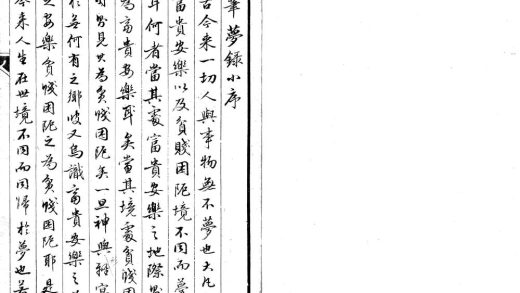 夢錄小序
古今来一切人與事物無不夢也大凡
富貴安樂以及貧賤困阨境不同而夢
耳何者當其處富貴安樂之地際
為富貴安樂耳矣當其境處貧賤困
見只為貧賤困阨矣一旦神與
於無何有之鄉彼又烏識富貴安樂之
安樂貧賤困阨之為貧賤困阨耶是
来人生在世境不同而同歸於夢也若